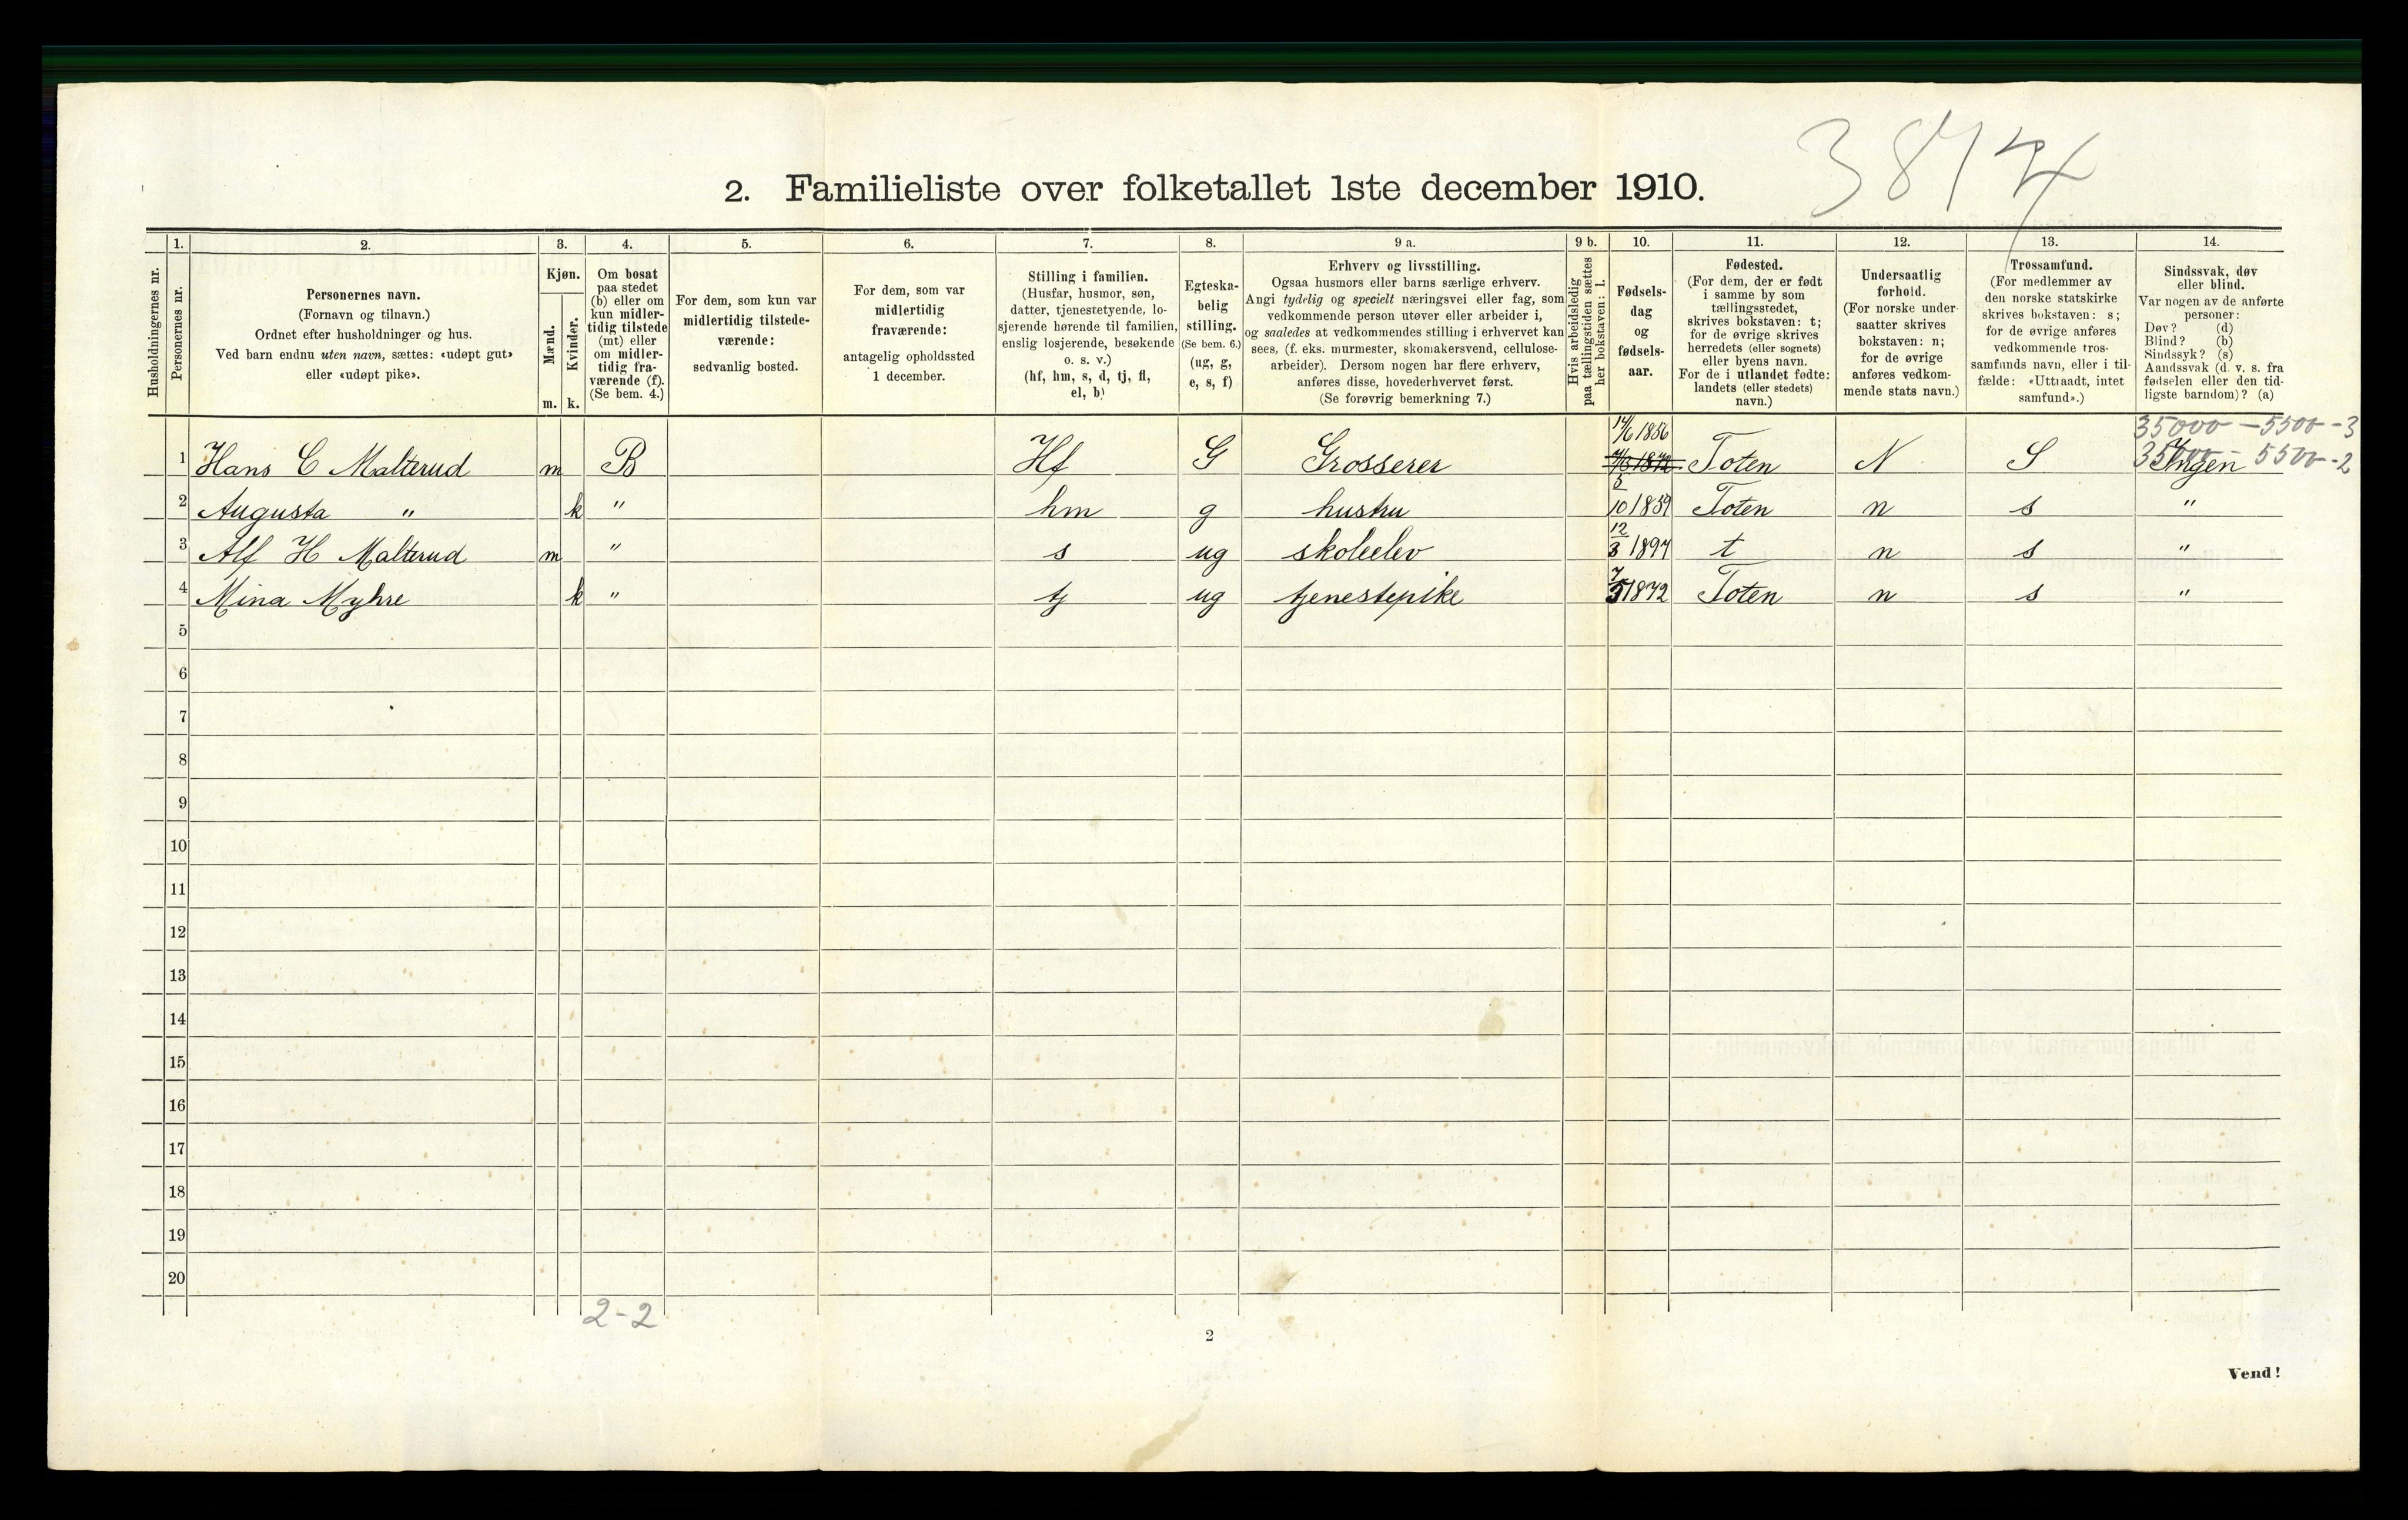 387
2. Familieliste over folketallet 1ste december 1910.
Husholdningernes nr.
1. Personernes nr.
2. Personernes navn.
(Fornavn og tilnavn.)
Ordnet efter husholdninger og hus.
Ved barn endnu uten navn, sættes: «udøpt gut»
eller «udøpt pike».
3. Kjøn.
Mænd. m.
Kvinder. k.
4. Om bosat
paa stedet
(b) eller om
kun midler-
tidig tilstede
(mt) eller
om midler-
tidig fra-
værende (f).
(Se bem. 4.)
5. For dem, som kun var
midlertidig tilstede-
værende:
sedvanlig bosted.
6. For dem, som var
midlertidig
fraværende:
antagelig opholdssted
1 december.
7. Stilling i familien.
(Husfar, husmor, søn,
datter, tjenestetyende, lo-
sjerende hørende til familien,
enslig losjerende, besøkende
o. s. v.)
(hf, hm, s, d, tj, fl,
el, b)
8. Egteska-
belig
stilling.
(Se bem. 6.)
(ug, g,
e, s, f)
9 a. Erhverv og livsstilling.
Ogsaa husmors eller barns særlige erhverv.
Angi tydelig og specielt næringsvei eller fag, som
vedkommende person utøver eller arbeider i,
og saaledes at vedkommendes stilling i erhvervet kan
sees, (f. eks. murmester, skomakersvend, cellulose-
arbeider). Dersom nogen har flere erhverv,
anføres disse, hovederhvervet først.
(Se forøvrig bemerkning 7.)
9 b. Hvis arbeidsledig
paa tællingstiden sættes
her bokstaven: l.
10. Fødsels-
dag
og
fødsels-
aar.
11. Fødested.
(For dem, der er født
i samme by som
tællingsstedet,
skrives bokstaven: t;
for de øvrige skrives
herredets (eller sognets)
eller byens navn.
For de i utlandet fødte:
landets (eller stedets)
navn.)
12. Undersaatlig
forhold.
(For norske under-
saatter skrives
bokstaven: n;
for de øvrige
anføres vedkom-
mende stats navn.)
13. Trossamfund.
(For medlemmer av
den norske statskirke
skrives bokstaven: s;
for de øvrige anføres
vedkommende tros-
samfunds navn, eller i til-
fælde: «Uttraadt, intet
samfund».)
14. Sindssvak, døv
eller blind.
Var nogen av de anførte
personer:
Døv? (d)
Blind? (b)
Sindssyk? (s)
Aandssvak (d. v. s. fra
fødselen eller den tid-
ligste barndom)? (a)
35000 - 5500 - 3
35000 - 5500 - 2
1 Hans C Malterud m B Hf G Grosserer 14/6 1856 Toten N S Ingen
2 Augusta " k " hm g hustru 5/10 1859 Toten n s "
3 Alf H Malterud m " s ug skoleelev 12/3 1894 t n s "
4 Mina Myhre k " tj ug tjenestepike 7/5 1872 Toten n s "
5
6
7
8
9
10
11
12
13
14
15
16
17
18
19
20
2-2
2
Vend!